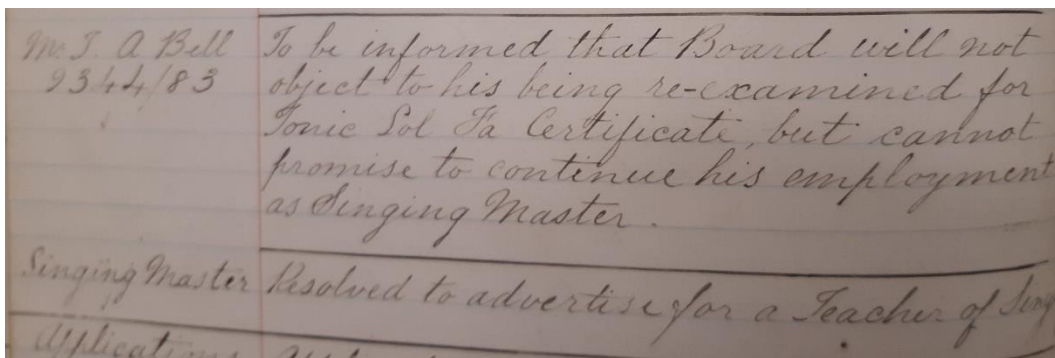 Mr. T. A Bell
9344/83
To be informed that Board will not
object to his being re-examined for
Tonic Sol Fa Certificate, but cannot
promise to continue his employment
as Singing Master.
Singing Master
Resolved to advertise for a Teacher of Sing
Applications